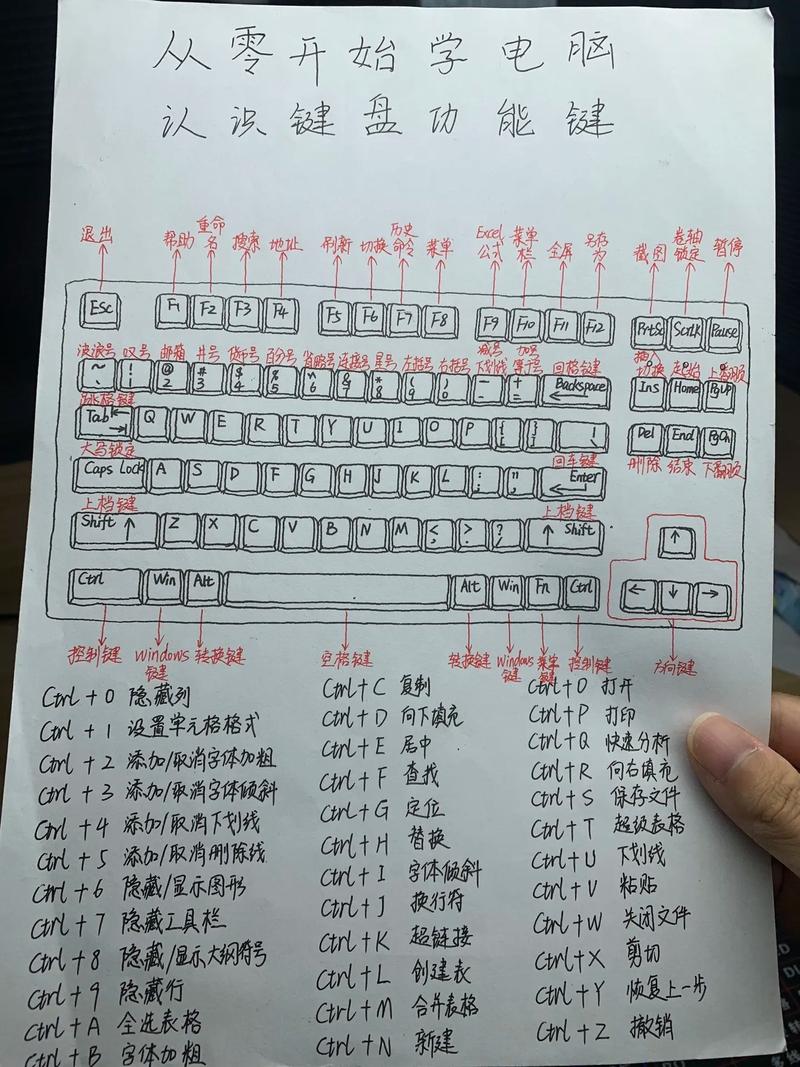 从零开始学电脑
认识键盘功能键
退出 帮助 重命名 搜索 地址 刷新 切换 历史命令 菜单 Excel公式 菜单栏 全屏 另存为 截图 卷轴锁定 暂停
Esc F1 F2 F3 F4 F5 F6 F7 F8 F9 F10 F11 F12 PrtSc ScrLK Pause
波浪号 叹号 邮箱 井号 货币号 百分号 省略号 连接号 星号 左括号 右括号 减号下划线 加号等于号 回格键键 插入切换 上翻页
~ ` ! 1 @ 2 # 3 $ 4 % 5 ^ 6 & 7 * 8 ( 9 ) 0 - + = Backspace Ins Home PgUp
跳格键
Tab Q W E R T Y U I O P { [ } ] \ Del End PgDn
大写锁定 回车键键 删除 结束 下翻页
Caps Lock A S D F G H J K L : ; " Enter
上档键 上档键
Shift ↑ Z X C V B N M < > ? / ↑ Shift ↑
Ctrl Win Alt Alt Win Fn Ctrl ← ↓ →
控制键 Windows键 转换键 空格键 转换键 Windows键 控制键 方向键
Ctrl + 0 隐藏列
Ctrl + 1 设置单元格格式
Ctrl + 2 添加/取消字体加粗
Ctrl + 3 添加/取消字体倾斜
Ctrl + 4 添加/取消下划线
Ctrl + 5 添加/取消删除线
Ctrl + 6 隐藏/显示图形
Ctrl + 7 隐藏工具栏
Ctrl + 8 隐藏/显示大纲符号
Ctrl + 9 隐藏行
Ctrl + A 全选表格
Ctrl + B 字体加粗
Ctrl + C 复制
Ctrl + D 向下填充
Ctrl + E 居中
Ctrl + F 查找
Ctrl + G 定位
Ctrl + H 替换
Ctrl + I 字体倾斜
Ctrl + J 换行符
Ctrl + K 超链接
Ctrl + L 创建表
Ctrl + M 合并表格
Ctrl + N 新建
Ctrl + O 打开
Ctrl + P 打印
Ctrl + Q 快速分析
Ctrl + R 向右填充
Ctrl + S 保存文件
Ctrl + T 超级表格
Ctrl + U 下划线
Ctrl + V 粘贴
Ctrl + W 关闭文件
Ctrl + X 剪切
Ctrl + Y 恢复上一步
Ctrl + Z 撤销